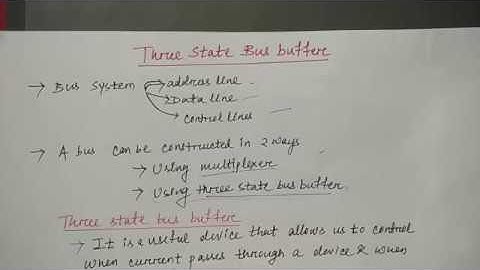 Three State Bus buffer
→ Bus System → address line
→ Data line
→ control lines
→ A bus can be constructed in 2 ways
→ Using multiplexer
→ Using three state bus buffer.
Three state bus buffer
→ It is a useful device that allows us to control
when current passes through a device & when